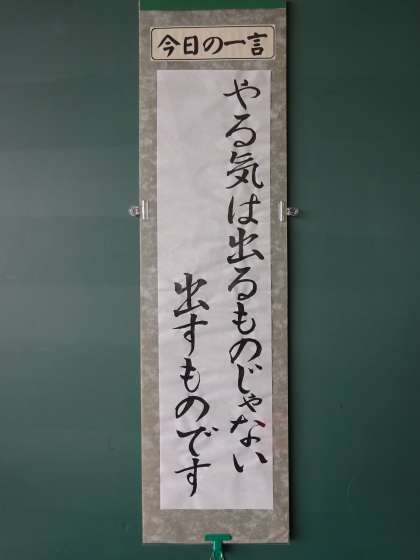 今日の一言
やる気は出るものじゃない
出すものです